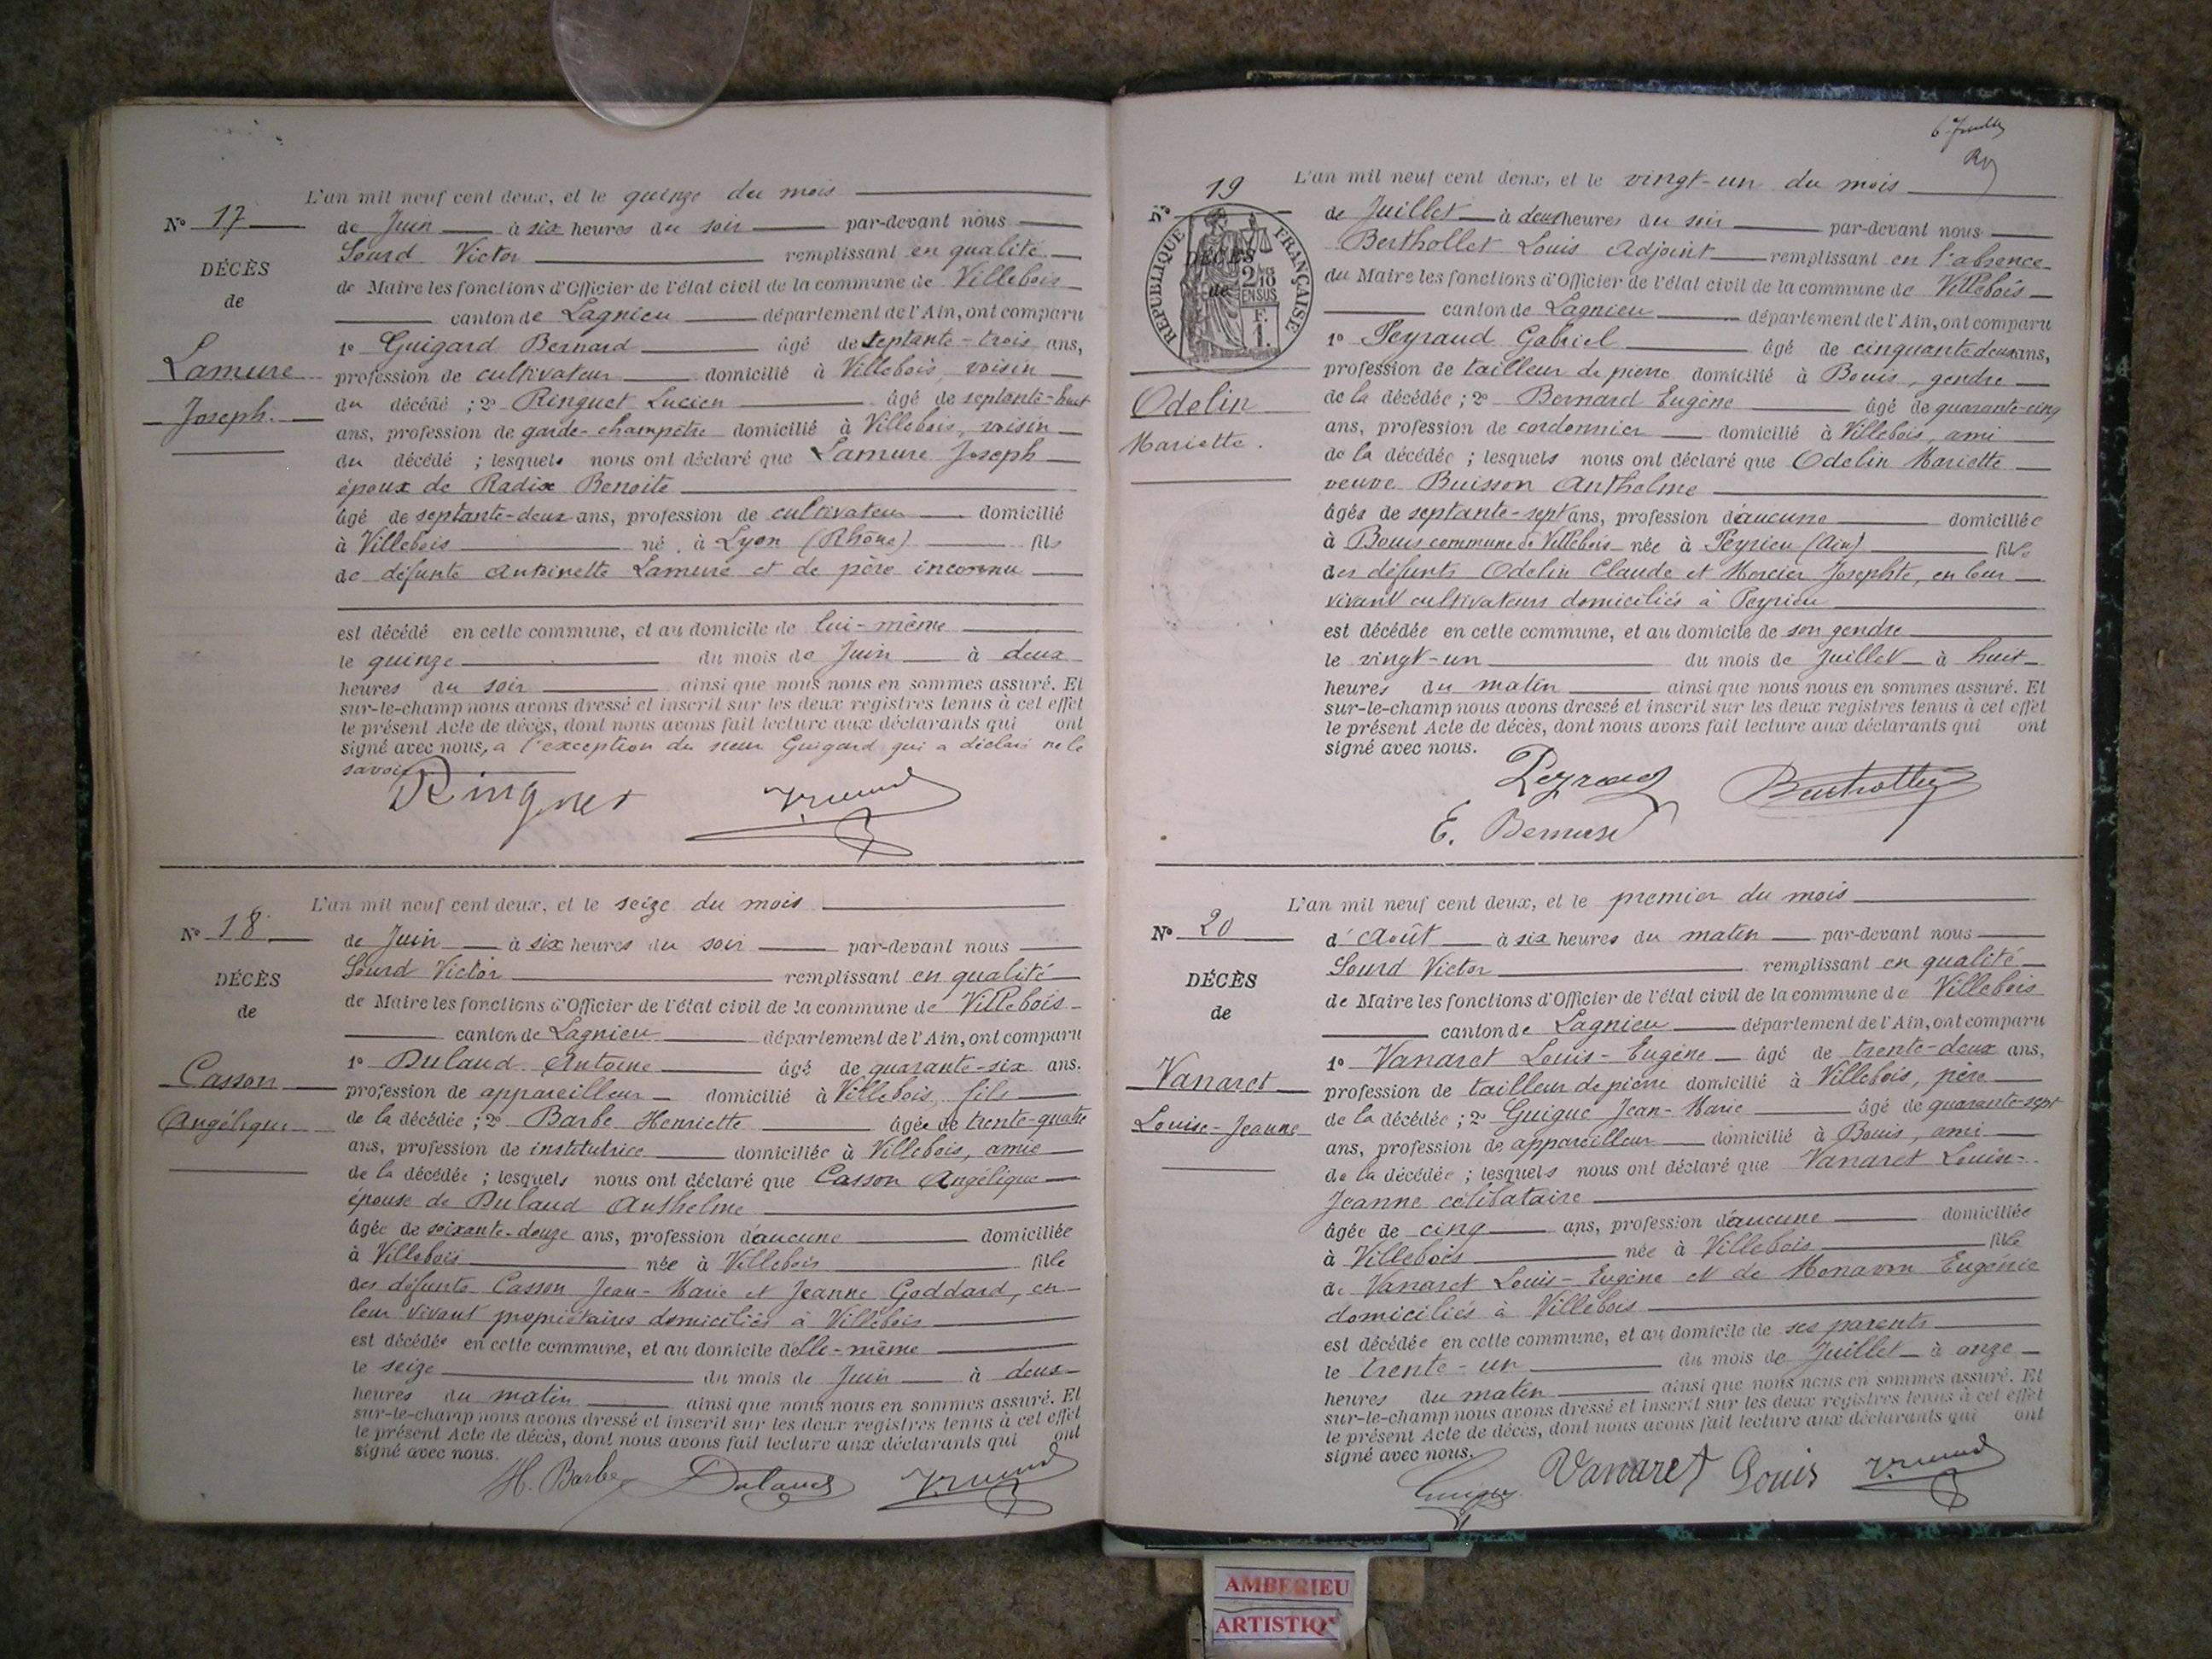 L'an mil neuf cent deux, et le quinze du mois
N° 17
de Juin à six heures du soir par-devant nous
Sourd Victor remplissant en qualité
DÉCÈS
de
de Maire les fonctions d'Officier de l'état civil de la commune de Villebois
canton de Lagnieu département de l'Ain, ont comparu
1° Guigard Bernard âgé de septante-trois ans,
Lamure
profession de cultivateur domicilié à Villebois, voisin
du décédé ; 2° Ringuet Lucien âgé de septante-huit
Joseph.
ans, profession de garde-champêtre domicilié à Villebois, voisin
du décédé ; lesquels nous ont déclaré que Lamure Joseph
époux de Radix Benoite
âgé de septante-deux ans, profession de cultivateur domicilié
à Villebois né à Lyon (Rhône) fils
de défunte Antoinette Lamure et de père inconnu
est décédé en cette commune, et au domicile de lui-même
le quinze du mois de Juin à deux
heures du soir ainsi que nous nous en sommes assuré. Et
sur-le-champ nous avons dressé et inscrit sur les deux registres tenus à cet effet
le présent Acte de décès, dont nous avons fait lecture aux déclarants qui ont
signé avec nous, a l'exception du sieur Guigard qui a déclaré ne le
savoir
Ringuet
L'an mil neuf cent deux, et le seize du mois
N° 18
de Juin à six heures du soir par-devant nous
Sourd Victor remplissant en qualité
DÉCÈS
de
de Maire les fonctions d'Officier de l'état civil de la commune de Villebois
canton de Lagnieu département de l'Ain, ont comparu
1° Dulaud Antoine âgé de quarante-six ans.
Casson
profession de appareilleur domicilié à Villebois, fils
de la décédée ; 2° Barbe Henriette âgée de trente-quatre
Angélique
ans, profession de institutrice domiciliée à Villebois, amie
de la décédée ; lesquels nous ont déclaré que Casson Angélique
épouse de Dulaud Anthelme
âgée de soixante-douze ans, profession d'aucune domiciliée
à Villebois née à Villebois fille
des défunts Casson Jean-Marie et Jeanne Goddard, en
leur vivant propriétaires domiciliés à Villebois
est décédée en cette commune, et au domicile d'elle-même
le seize du mois de Juin à deux
heures du matin ainsi que nous nous en sommes assuré. Et
sur-le-champ nous avons dressé et inscrit sur les deux registres tenus à cet effet
le présent Acte de décès, dont nous avons fait lecture aux déclarants qui ont
signé avec nous.
H. Barbe Dulaud
6 Juillet
L'an mil neuf cent deux, et le vingt-un du mois
N° 19
de Juillet à deux heures du soir par-devant nous
Berthollet Louis Adjoint remplissant en l'absence
RÉPUBLIQUE FRANÇAISE
DÉCÈS
de
2/10
EN SUS
F.
1.
du Maire les fonctions d'Officier de l'état civil de la commune de Villebois
canton de Lagnieu département de l'Ain, ont comparu
1° Peyraud Gabriel âgé de cinquante deux ans,
profession de tailleur de pierre domicilié à Bouis, gendre
Odelin
de la décédée ; 2° Bernard Eugène âgé de quarante-cinq
Mariette.
ans, profession de cordonnier domicilié à Villebois, ami
de la décédée ; lesquels nous ont déclaré que Odelin Mariette
veuve Buisson Anthelme
âgée de septante-sept ans, profession d'aucune domiciliée
à Bouis commune de Villebois née à Peyrieu (Ain) fille
des défunts Odelin Claude et Mercier Josephte, en leur
vivant cultivateurs domiciliés à Peyrieu
est décédée en cette commune, et au domicile de son gendre
le vingt-un du mois de Juillet à huit
heures du matin ainsi que nous nous en sommes assuré. Et
sur-le-champ nous avons dressé et inscrit sur les deux registres tenus à cet effet
le présent Acte de décès, dont nous avons fait lecture aux déclarants qui ont
signé avec nous.
Peyraud Berthollet
E. Bernard
L'an mil neuf cent deux, et le premier du mois
N° 20
d'Août à six heures du matin par-devant nous
Sourd Victor remplissant en qualité
DÉCÈS
de
de Maire les fonctions d'Officier de l'état civil de la commune de Villebois
canton de Lagnieu département de l'Ain, ont comparu
1° Vanaret Louis-Eugène âgé de trente-deux ans,
Vanaret
profession de tailleur de pierre domicilié à Villebois, père
de la décédée ; 2° Guigue Jean-Marie âgé de quarante-sept
Louise-Jeanne
ans, profession de appareilleur domicilié à Bouis, ami
de la décédée ; lesquels nous ont déclaré que Vanaret Louise-
Jeanne célibataire
âgée de cinq ans, profession d'aucune domiciliée
à Villebois née à Villebois fille
de Vanaret Louis-Eugène et de Monavon Eugénie
domiciliés à Villebois
est décédée en cette commune, et au domicile de ses parents
le trente-un du mois de Juillet à onze
heures du matin ainsi que nous nous en sommes assuré. Et
sur-le-champ nous avons dressé et inscrit sur les deux registres tenus à cet effet
le présent Acte de décès, dont nous avons fait lecture aux déclarants qui ont
signé avec nous.
Guigue Vanaret Louis
AMBERIEU
ARTISTIQ